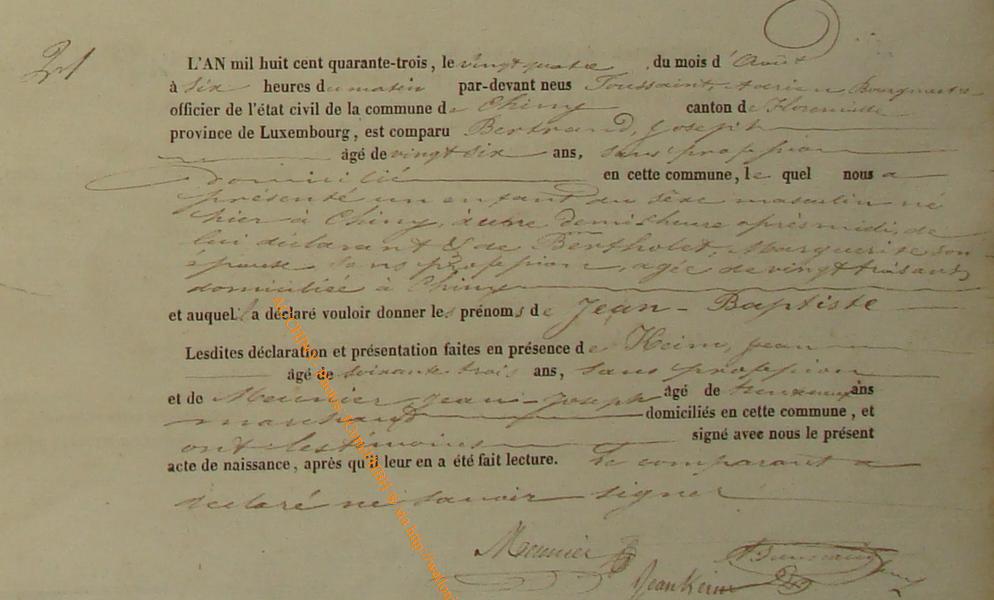 21
L'AN mil huit cent quarante-trois, le vingt quatre du mois d'Août
à six heures du matin par-devant nous Toussaint, Bourgmestre
officier de l'état civil de la commune de Chiny canton de Florenville
province de Luxembourg, est comparu Bertrand, Joseph
âgé de vingt six ans, sans profession
domicilié en cette commune, le quel nous a
présenté un enfant du sexe masculin né
hier à Chiny, à une demi-heure après midi, de
lui déclarant & de Bertholet, Marguerite son
épouse sans profession, agée de vingt trois ans,
domiciliée à Chiny
et auquel il a déclaré vouloir donner les prénoms de Jean-Baptiste
Lesdites déclaration et présentation faites en présence de Keim, Jean
âgé de soixante trois ans, sans profession
et de Meunier Jean Joseph âgé de ans
marchand domiciliés en cette commune, et
ont les témoins signé avec nous le présent
acte de naissance, après qu'il leur en a été fait lecture. Le comparant a
declaré ne savoir signer
Meunier
Jean Keim